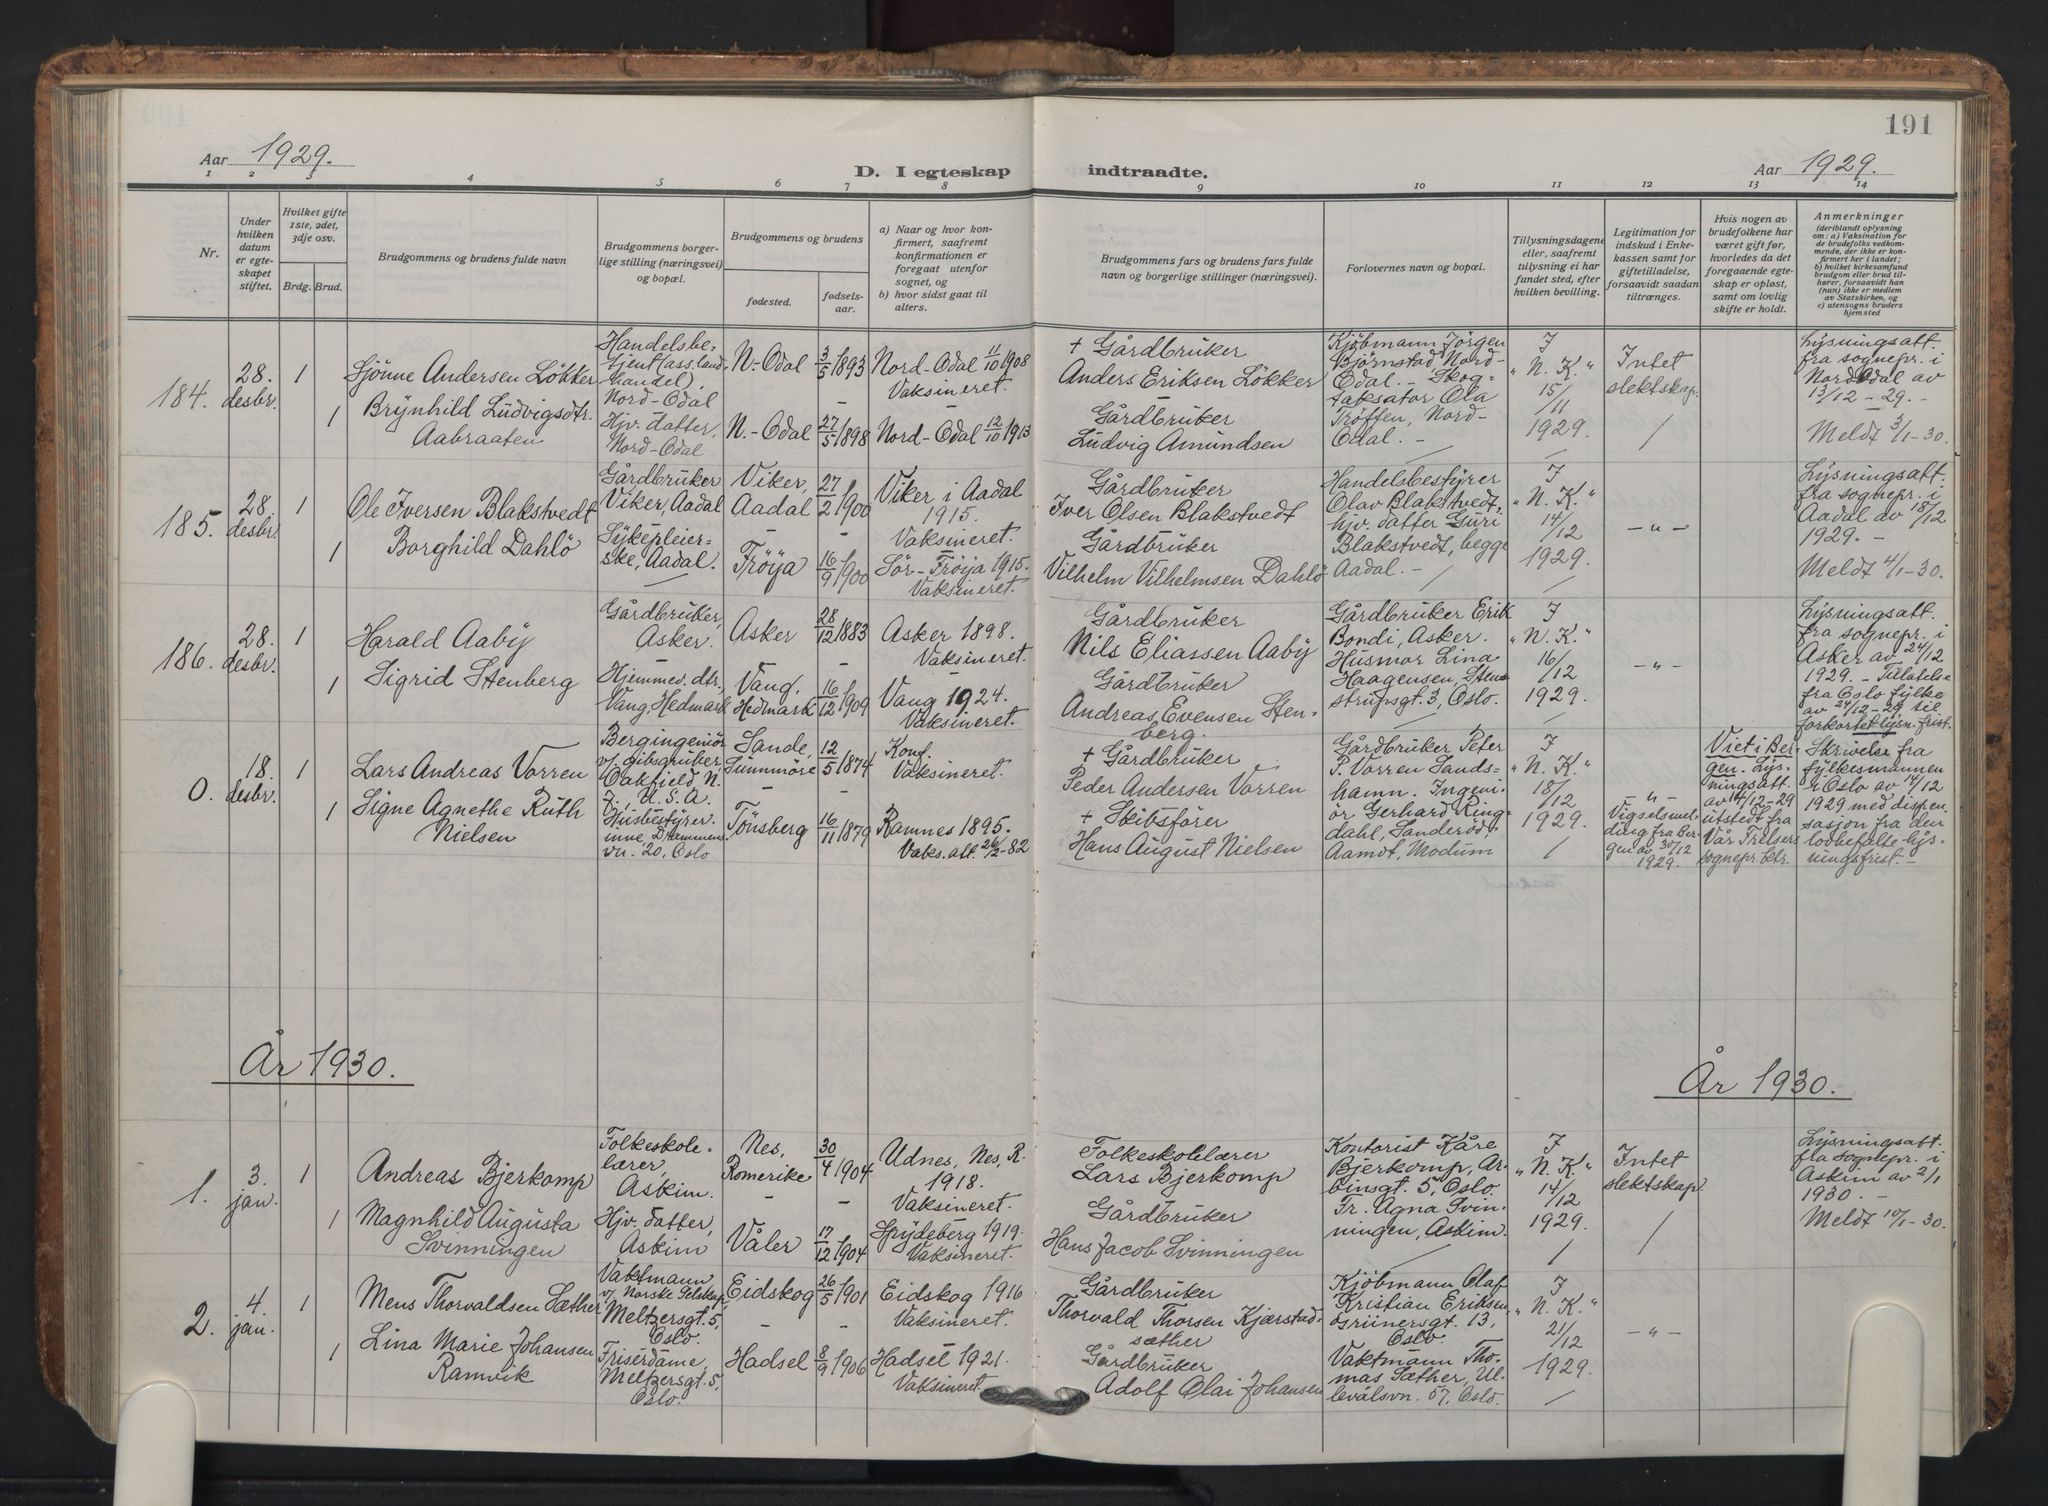 191
Aar 1929.
D. I egteskap indtraadte.
Aar 1929.
1 2 3 4 5 6 7 8 9 10 11 12 13 14
Nr.
Under
hvilken
datum
er egte-
skapet
stiftet.
Hvilket gifte
1ste, 2det,
3dje osv.
Brdg. Brud.
Brudgommens og brudens fulde navn
Brudgommens borger-
lige stilling (næringsvei)
og bopæl.
Brudgommens og brudens
fødested.
fødsels-
aar.
a) Naar og hvor kon-
firmert, saafremt
konfirmationen er
foregaat utenfor
sognet, og
b) hvor sidst gaat til
alters.
Brudgommens fars og brudens fars fulde
navn og borgerlige stillinger (næringsvei).
Forlovernes navn og bopæl.
Tillysningsdagene
eller, saafremt
tillysning ei har
fundet sted, efter
hvilken bevilling.
Legitimation for
indskud i Enke-
kassen samt for
giftetilladelse,
forsaavidt saadan
tiltrænges.
Hvis nogen av
brudefolkene har
været gift før,
hvorledes da det
foregaaende egte-
skap er opløst,
samt om lovlig
skifte er holdt.
Anmerkninger
(deriblandt oplysning
om: a) Vaksination for
de brudefolks vedkom-
mende, der ikke er kon-
firmert her i landet;
b) hvilket kirkesamfund
brudgom eller brud til-
hører, forsaavidt han
(hun) ikke er medlem
av Statskirken, og
c) utensogns bruders
hjemsted
184.
28.
desbr.
1
Sjönne Andersen Lökker
Handelsbe-
tjent (ass. land-
handel),
Nord-Odal
N.-Odal
3/5 1893
Nord-Odal 11/10 1908
Vaksineret.
+ Gårdbruker
Anders Eriksen Lökker
1
Brynhild Ludvigsdtr.
Aabraaten
Hjv. datter,
Nord-Odal
N.-Odal
27/5 1898
Nord-Odal 12/10 1913
Gårdbruker
Ludvig Amundsen
Kjöbmann Jörgen
Björnstad Nord-
Odal. - Skog-
taksator Ola
Tröffen, Nord-
Odal. -
I
"N. K."
15/11
1929.
Intet
slektskap.
Lysningsatt.
fra sognepr. i
Nord Odal av
13/12 - 29. -
Meldt 3/1-30.
185.
28
desbr.
1
Ole Iversen Blakstvedt
Gårdbruker
Viker, Aadal
Viker,
Aadal
27/2 1900
Viker i Aadal
1915.
Vaksineret.
Gårdbruker
Iver Olsen Blakstvedt
1
Borghild Dahlö
Sykepleier-
ske, Aadal.
Fröya
16/9 1900
Sör-Fröya 1915.
Vaksineret.
Gårdbruker
Vilhelm Vilhelmsen Dahlö
Handelsbestyrer
Olav Blakstvedt,
hjv. datter Guri
Blakstvedt, begge
Aadal. -
I
"N. K."
14/12
1929.
- " -
Lysningsatt.
fra sognepr. i
Aadal av 18/12
1929. -
Meldt 4/1-30.
186.
28.
desbr.
1
Harald Aaby
Gårdbruker,
Asker.
Asker
28/12 1883
Asker 1898.
Vaksineret.
Gårdbruker
Nils Eliassen Aaby
1
Sigrid Stenberg
Hjemmev. dtr.,
Vang, Hedmark
Vang,
Hedmark
16/12 1909
Vang 1924.
Vaksineret.
Gårdbruker
Andreas Evensen Sten-
berg.
Gårdbruker Erik
Bondi, Asker.
Husmor Lina
Haagensen, Sten-
strupsgt. 3, Oslo.
I
"N. K."
16/12
1929.
- " -
Lysningsatt.
fra sognepr. i
Asker av 24/12
1929. - Tillatelse
fra Oslo fylke
av 24/12-29 til
forkortet lysn. frist.
0.
18.
desbr.
1
Lars Andreas Vorren
Bergingeniör
v/ gibsgruber,
Oakfield N.
Y., U. S. A.
Sande,
Sunnmöre
12/5 1874
Konf.
Vaksineret.
+ Gårdbruker
Peder Andersen Vorren
1
Signe Agnethe Ruth
Nielsen
Husbestyrer-
inne, Drammens-
vn. 20, Oslo
Tönsberg
16/11 1879
Ramnes 1895.
Vaks. att. 26/2-82
+ Skibsförer
Hans August Nielsen
Gårdbruker Peter
P. Vorren Sands-
hamn. Ingeni-
ör Gerhard Ring-
dahl, Sanderöd,
Aamot, Modum
I
"N. K."
18/12
1929.
- " -
Vigselsmel-
ding fra Ber-
gen av 30/12
1929.
Viet i Ber-
gen. Lys-
ningsatt.
av 14/12-29
utstedt fra
Vår Frelsers
sognepr. ktr.
Skrivelse fra
fylkesmannen
i Oslo av 14/12
1929 med dispen-
sasjon fra den
lovbefalte lys-
ningsfrist. -
År 1930.
År 1930.
1.
3.
jan.
1
Andreas Bjerkomp
Folkeskole-
lærer,
Askim.
Nes,
Romerike
30/4 1904
Udnes, Nes, R.
1918.
Vaksineret.
Folkeskolelærer
Lars Bjerkomp
1
Magnhild Augusta
Svinningen
Hjv. datter,
Askim
Våler
17/12 1904
Spydeberg 1919.
Vaksineret.
Gårdbruker
Hans Jacob Svinningen
Kontorist Kåre
Bjerkomp, Ar-
binsgt. 5, Oslo.
Fr. Agna Svin-
ningen, Askim.
I
"N. K."
14/12
1929.
Intet
slektskap
Lysningsatt.
fra sognepr. i
Askim av 2/1
1930. -
Meldt 10/1-30.
2.
4.
jan.
1
Mens Thorvaldsen Sæther
Vaktmann
v/ Norske Selskap,
Meltzersgt. 5,
Oslo.
Eidskog
26/5 1901
Eidskog 1916
Vaksineret.
Gårdbruker
Thorvald Thorsen Kjærstad-
sæther
1
Lina Marie Johansen
Ramvik
Frisérdame,
Meltzersgt. 5,
Oslo.
Hadsel
8/9 1906
Hadsel 1921.
Vaksineret.
Gårdbruker
Adolf Olai Johansen
Kjöbmann Olaf
Kristian Eriksen,
Grünersgt. 13,
Oslo.
Vaktmann Tho-
mas Sæther, Ul-
levålsvn. 57, Oslo.
I
"N. K."
21/12
1929.
- " -